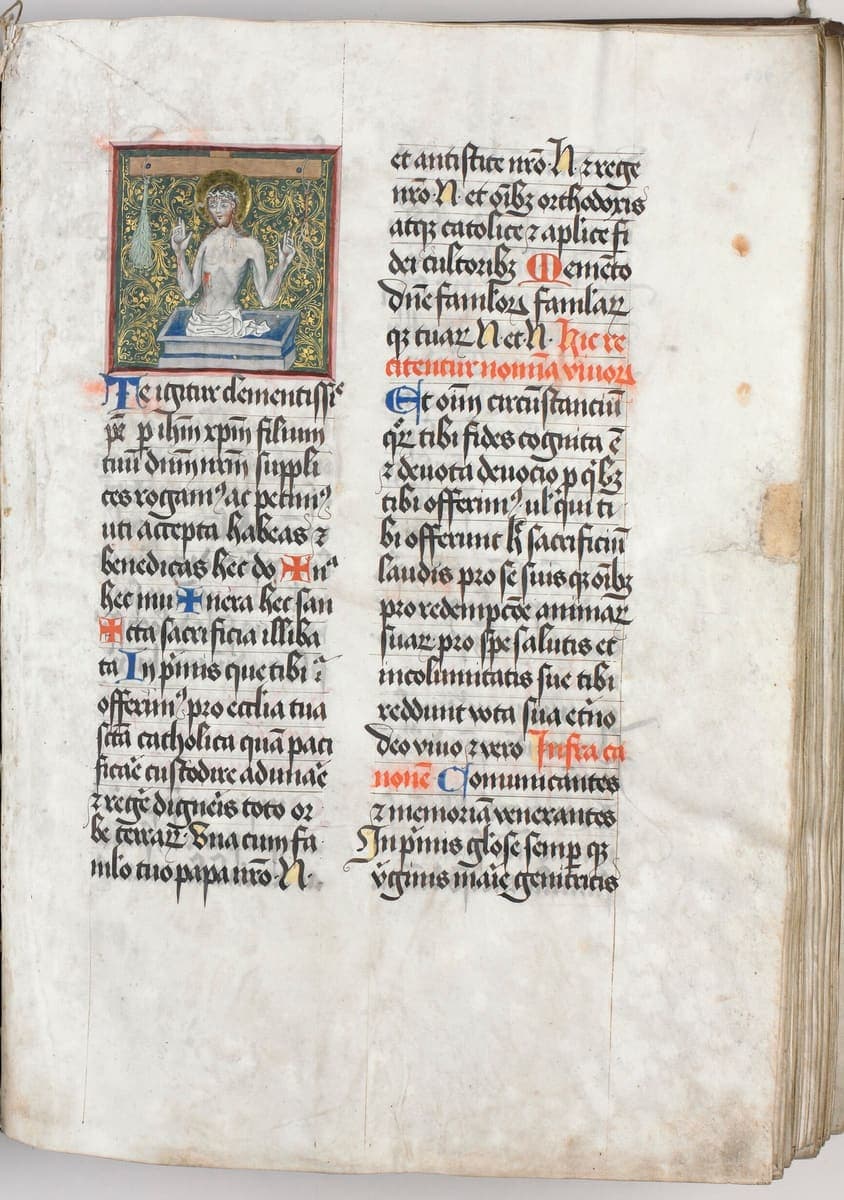 Te igitur clementissi͏ͤ
p̄r p ihm xpm filium
tuū dnm nrm suppli
ces rogamꝰ ac petimꝰ
uti accepta habeas ⁊
benedicas hec do ✠ nᵃ
hec mu ✠ nera hec san
✠ cta sacrificia illiba
ta In p̓mis que tibi
offerimꝰ pro ecclia tua
sctā catholica quā paci
ficar̄e custodire adunar̄e
⁊ reger̄e digner̓is toto or
be terraꝝ· Una cum fa
mlo tuo papa nr̄o· N·
et antistite nr̄o· N ⁊ rege
nr̄o N· et oībꝫ orthodoxis
atqꝫ catolice ⁊ aplice fi
dei cultoribꝫ Memēto
dn̄e famloꝝ famlaꝝ
qꝫ tuaꝝ N et N· Hic re
citentur nomīa vivoꝝ
Et oīm circūstanciū
qꝝ tibi fides cognita ē
⁊ devota devocio p qͥbꝫ
tibi offerimꝰ ul̓ qui ti
bi offerunt h̄ sacrificiū
laudis pro se suis qꝫ oībꝫ
pro redempcōe animaꝝ
suaꝝ pro spe salutis et
incolumitatis sue tibi
reddunt vota sua et̓no
deo vivo ⁊ vero Infra ca
nonē Comunicantes
⁊ memoriā venerantes
In p̓mis gl̓ose semp̱ qꝫ
v̓ginis mar̓ie genitricis